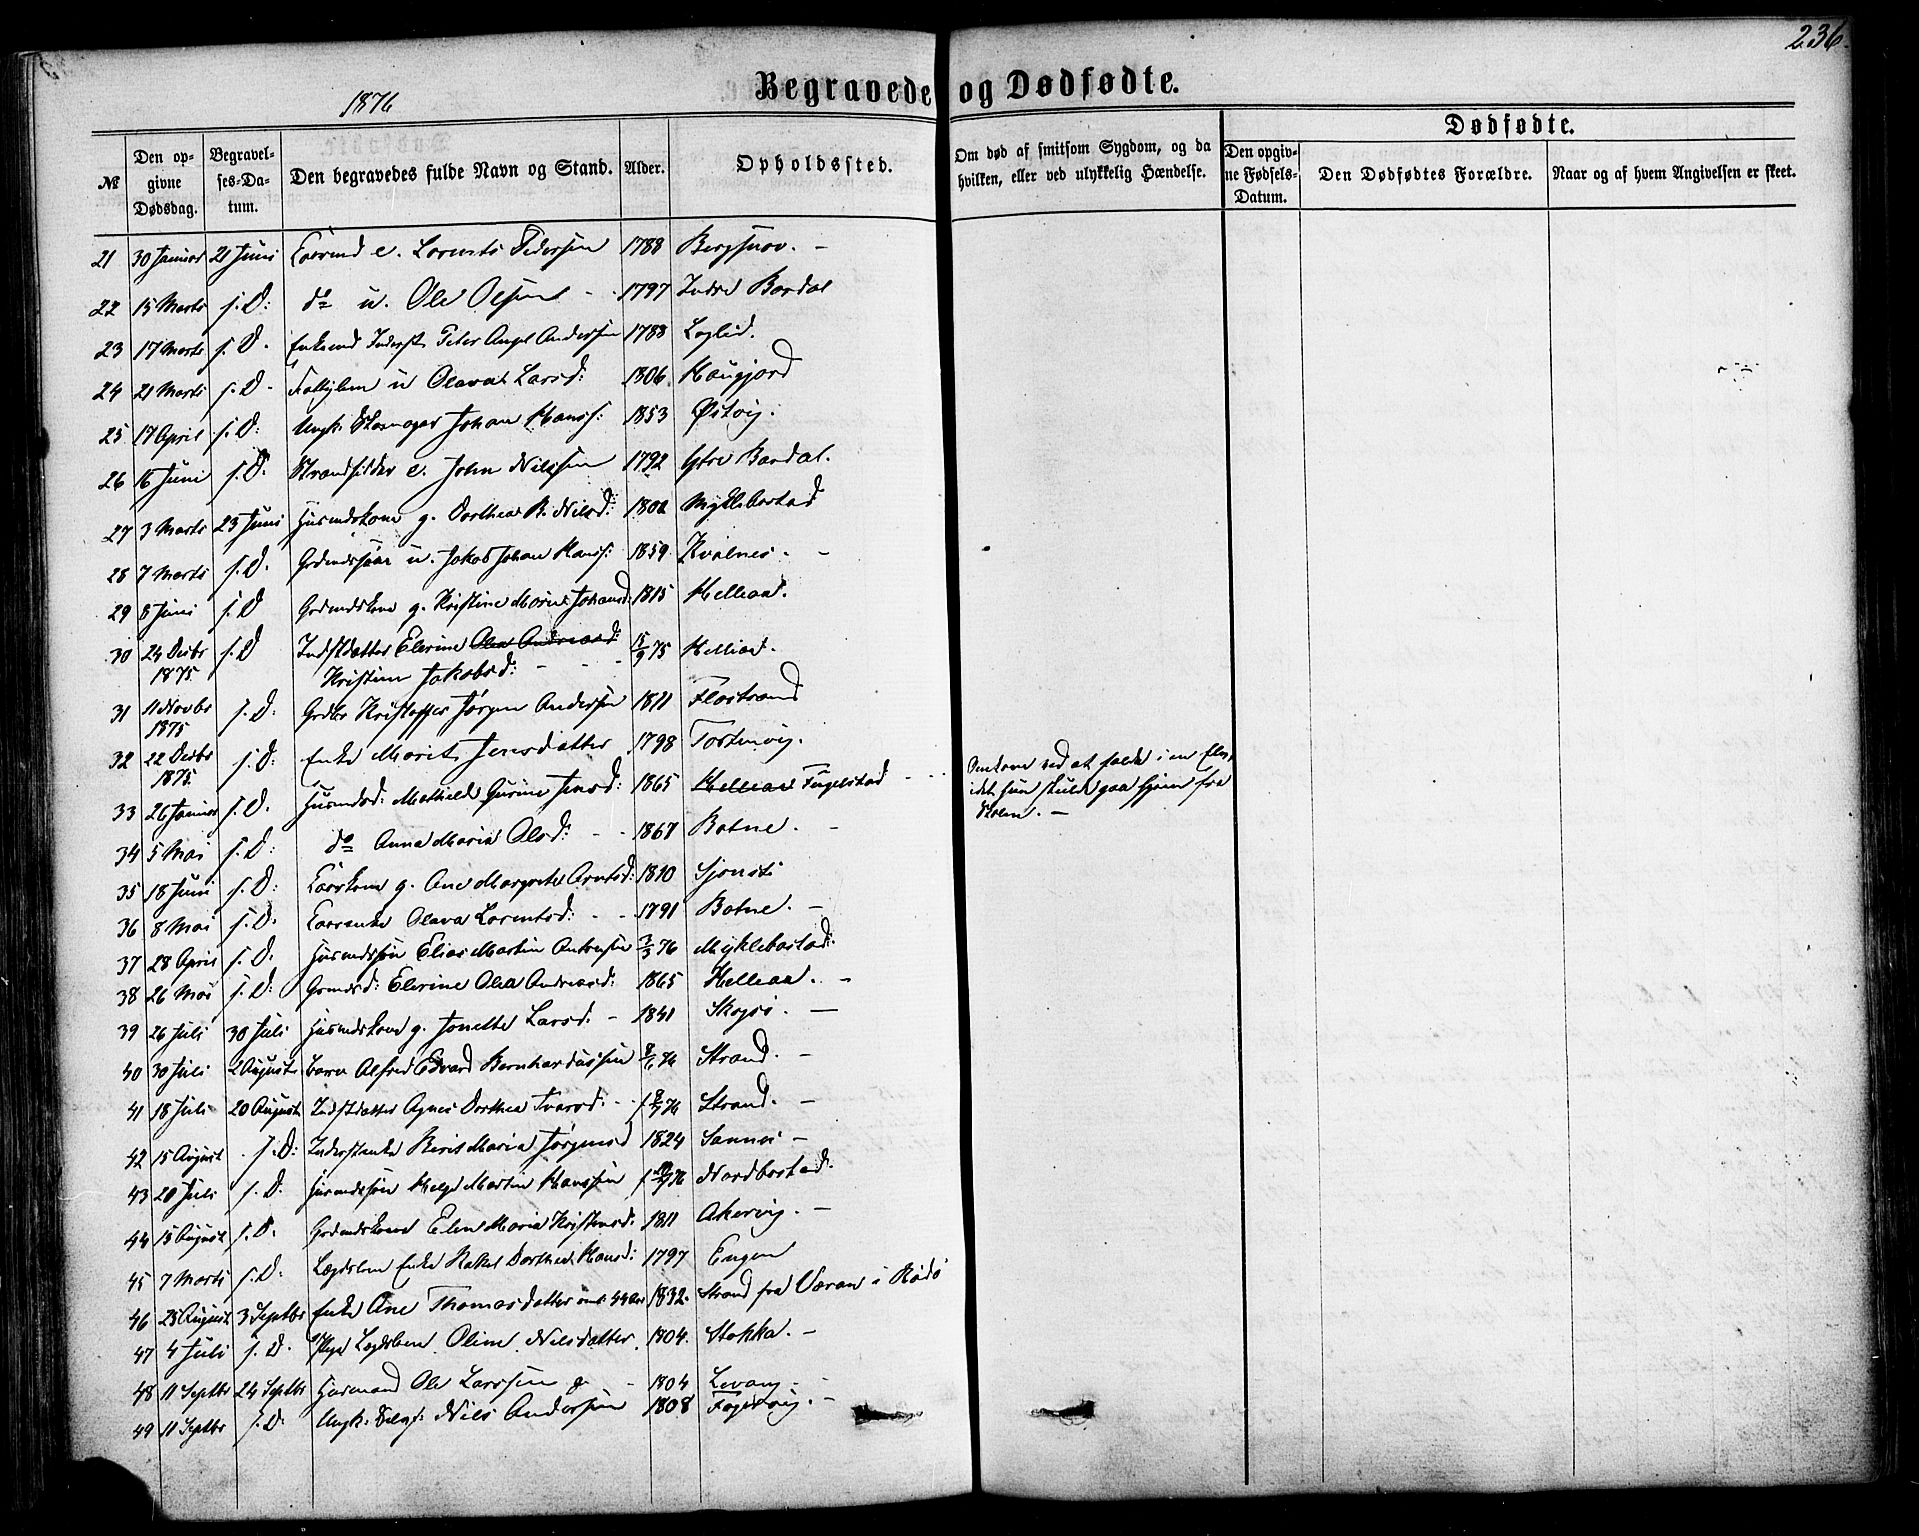 236.
1876
Begravede og Dødfødte.
№
Den opgivne Dødsdag.
Begravelses-Datum.
Den begravedes fulde Navn og Stand.
Alder.
Opholdssted.
Om død af smitsom Sygdom, og da hvilken, eller ved ulykkelig Hændelse.
Dødfødte.
Den opgivne Fødsels-Datum.
Den Dødfødtes Forældre.
Naar og af hvem Angivelsen er skeet.
21 30 Januar 21 Juni e. Lorents Pedersen 1788 Bergsnov. -
22 15 Marts s. D: do u. Ole Olsen - 1797 Indre Bardal
23 17 Marts s. D. Enkemd Inderst Peter Andersen 1788
24 21 Marts s. D - u Olava Larsd: 1806 Haugjord
25 17 April s. D: Ungk. Johan Hanss: 1853 Østvig.
26 16 Juni s. D. Strandsidder e. John Nilssen 1792 Ytre Bardal.
27 3 Marts 23 Juni Husmdskone g. Dorthea B. Nilsd: Myklebostad
28 7 Marts s. D. Grdmdssøn u. Jakob Johan Hanss: 1859 Kvalnes. -
29 8 Juni s. D Grdmdskone g. Kristine Johansd: 1815 Helleaa.
30 24 Decbr 1875 s. D Indstdatter Elerine Olea Andreasd: 15/9 75 Helleaa.
Kristine Jakobsd: - - -
31 11 Novbr 1875 s. D. Kristoffer Jørgen Andersen 1811 Flostrand
32 22 Decbr 1875. s. D: Enke Marit Jensdatter 1798
33 26 Januar s. D. Husmdsd: Mathilde Gurine Jensd: 1865 Helleaa Fugelstad - - - Omkom ved at falde i en Elv,
idet hun skulde gaa hjem fra
Skolen. -
34 5 Mai s. D: do Anna Maria Olsd: - - 1867 Botne. -
35 18 Juni s. D: g. Ane Margrete Arntsd: 1810 Sjonsti
36 8 Mai s. D. Olava Lorentsd: - - 1791 Botne. -
37 28 April s. D. Husmdssøn Elias Martin 76 Myklebostad.
38 26 Mai s. D: Elerine Olea Andreasd: 1865 Helleaa. -
39 26 Juli 30 Juli Husmdskone g. Jonette Larsd: - 1841 -
40 30 Juli 2 Augusts Barn Alfred Edvard Bernhardussen 76 Strand. -
41 18 Juli 20 August Indstdatter Agnes Dorthea Ivarsd: 76 Strand. -
42 15 August s. D: Inderstenke Maria Jørgensd 1824 -
43 20 Juli s. D. Husmdssøn Helge Martin Hanssen 76 Nordbostad.
44 15 August s. D. Grdmdskone Elen Maria Kristensd. 1811 Akervig. -
45 7 Marts s. D: Lægdslem Enke Rakel Dorthea Hansd: 1797 Engen
46 28 August 3 Septbr Enke Ane Thomasdatter 44 Aar 1832. Strand fra Væran i Rødø
47 4 Juli s. D. Lægdslem Oline Nilsdatter 1804. Stokka. -
48 11 Septbr 24 Septbr Husmand Ole Larssen - 1804 Levang. -
49 11 Septbr s. D. Ungk. Nils Andersen 1808 Fagervig. -